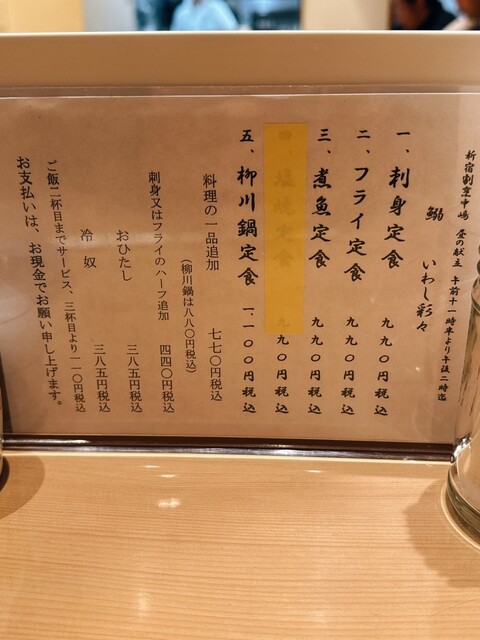 新宿割烹中嶋 昼の献立 午前十一時半より午後二時迄
鰯 いわし彩々
一、刺身定食 九九〇円税込
二、フライ定食 九九〇円税込
三、煮魚定食 九九〇円税込
四、塩焼定食 九九〇円税込
五、柳川鍋定食 一、一〇〇円税込
(柳川鍋は八八〇円税込)
料理の一品追加 七七〇円税込
刺身又はフライのハーフ追加 四四〇円税込
おひたし 三八五円税込
冷奴 三八五円税込
ご飯二杯目までサービス、三杯目より一一〇円税込
お支払いは、お現金でお願い申し上げます。